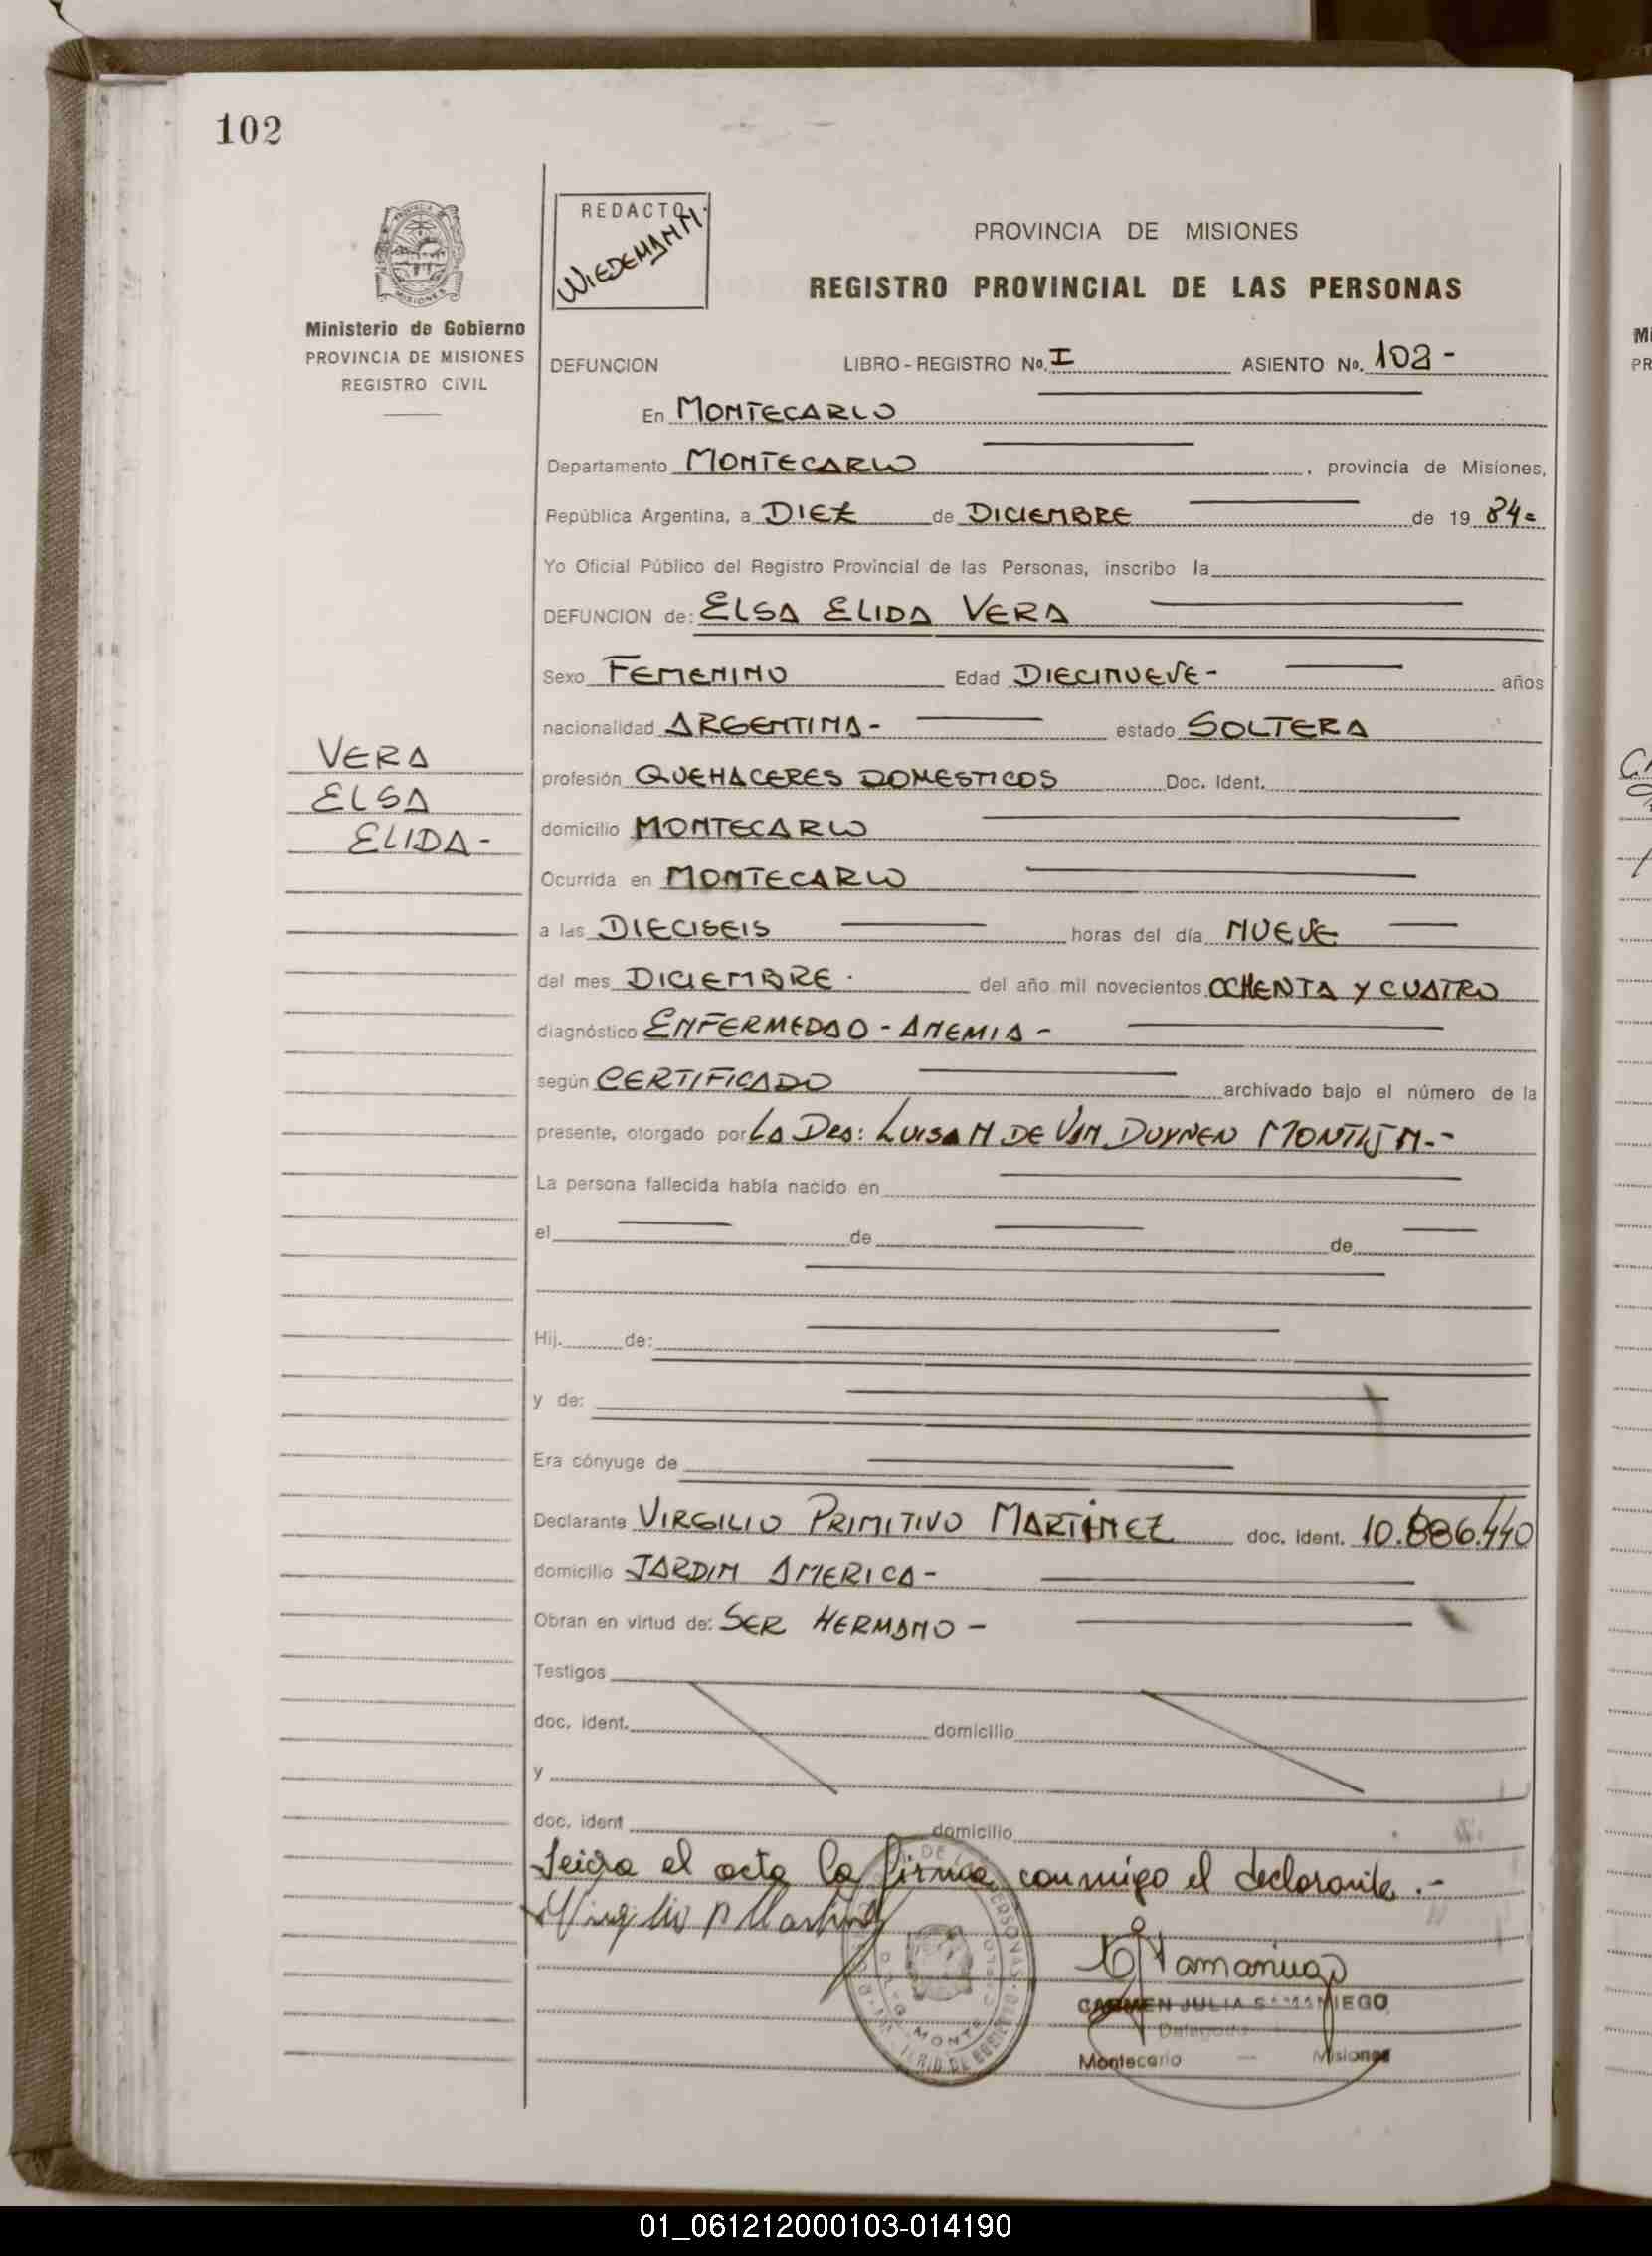 102
REDACTO.
WIEDEMANN
PROVINCIA DE MISIONES
REGISTRO PROVINCIAL DE LAS PERSONAS
Ministerio de Gobierno
PROVINCIA DE MISIONES
REGISTRO CIVIL
DEFUNCION LIBRO-REGISTRO No. I ASIENTO No. 102 -
En MONTECARLO
Departamento MONTECARLO, provincia de Misiones,
República Argentina, a DIEZ de DICIEMBRE de 19 84=
Yo Oficial Público del Registro Provincial de las Personas, inscribo la
DEFUNCION de: ELSA ELIDA VERA
Sexo FEMENINO Edad DIECINUEVE- años
nacionalidad ARGENTINA- estado SOLTERA
VERA
ELSA
ELIDA-
profesión QUEHACERES DOMESTICOS Doc. Ident.
domicilio MONTECARLO
Ocurrida en MONTECARLO
a las DIECISEIS horas del día NUEVE
del mes DICIEMBRE. del año mil novecientos OCHENTA Y CUATRO
diagnóstico ENFERMEDAD - ANEMIA -
según CERTIFICADO archivado bajo el número de la
presente, otorgado por LA DRA: LUISA M DE VAN DUYNEN
La persona fallecida había nacido en
el de de
Hij. de:
y de:
Era cónyuge de
Declarante VIRGILIO PRIMITIVO MARTINEZ doc. ident. 10.886.440
domicilio JARDIN AMERICA-
Obran en virtud de: SER HERMANO -
Testigos
doc. ident. domicilio
y
doc. ident domicilio
Leida el acta la firma conmigo el declarante .-
Virgilio P Martinez
CARMEN JULIA SAMANIEGO
Delegada
Montecarlo — Misiones
01_061212000103-014190